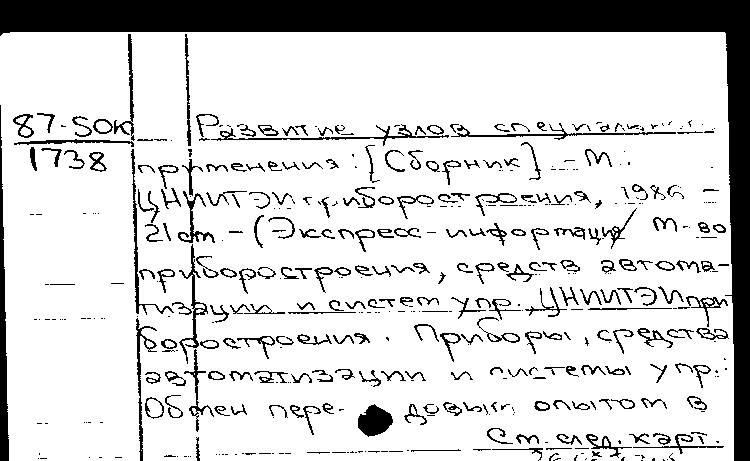 87-5ОК Развитие узлов специальн.
1738 применения: [Сборник]. - М.:
ЦНИИТЭИ приборостроения, 1986 -
21 cm - (Экспресс-информация / М-во
приборостроения, средств автома-
тизации и систем упр., ЦНИИТЭИ при
боростроения. Приборы, средства
автоматизации и системы упр.:
Обмен пере- довым опытом в
См. след. карт.